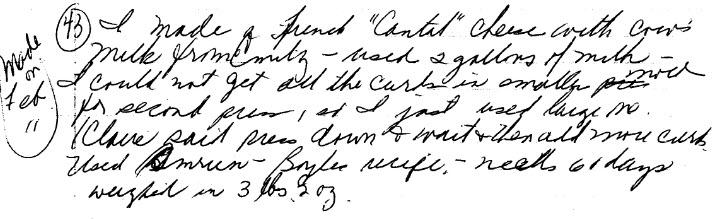 Made on Feb 11
(43) I made a French "Cantal" cheese with cow's
milk from - used 2 gallons of milk -
I could not get all the curds in smaller mold
for second press, so I just used large
(Claire said press down & wait & then add more curds
Used - recipe, - needs 60 days
weighed in 3 lbs. 2 oz.